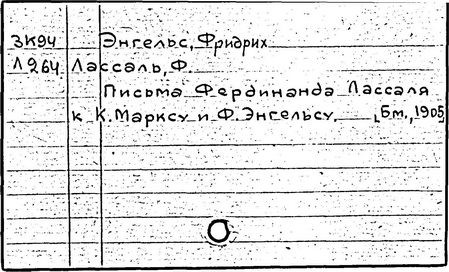 3К94 Энгельс, Фридрих
Л264 Лассаль, Ф.
Письма Фердинанда Лассаля
к К. Марксу и Ф. Энгельсу, — [Б.м., 1905]